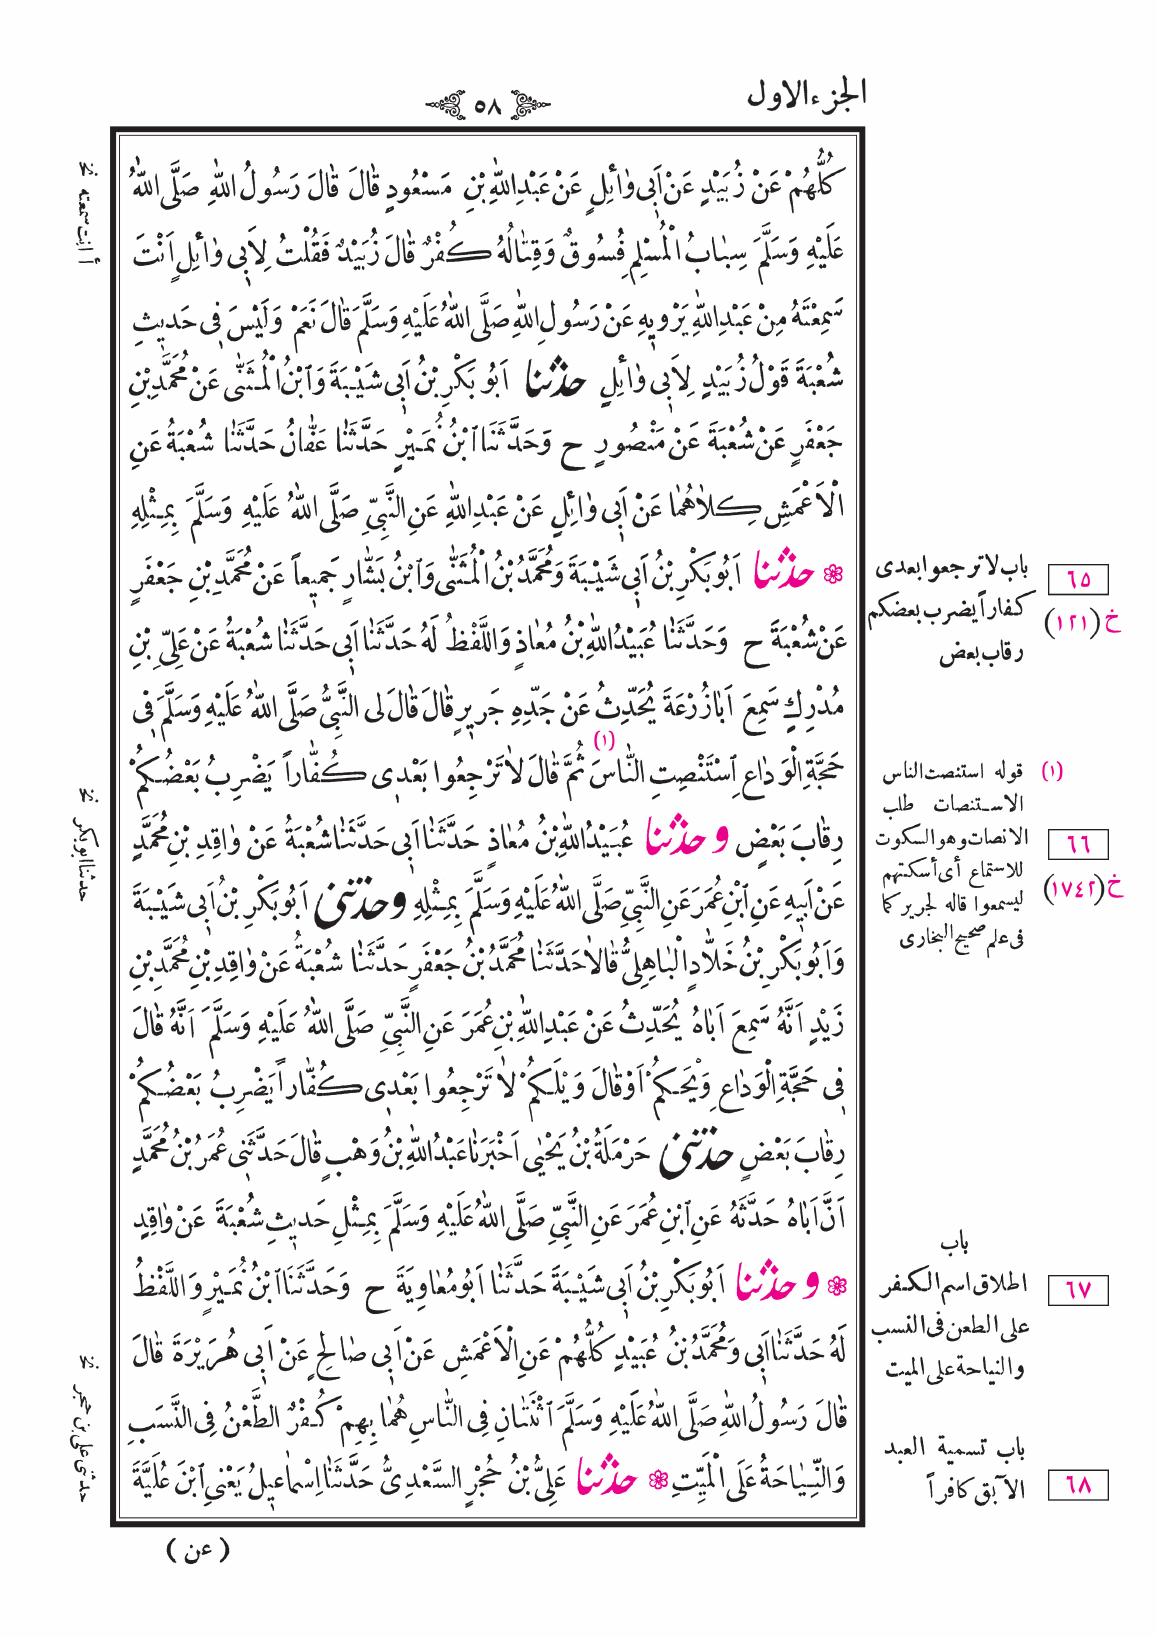 الجزء الاول
٥٨
كُلُّهُمْ عَنْ زُبَيْدٍ عَنْ اَبِى وٰائِلٍ عَنْ عَبْدِاللّٰهِ بْنِ مَسْعُودٍ قٰالَ قٰالَ رَسُولُ اللّٰهِ صَلَّى اللّٰهُ
عَلَيْهِ وَسَلَّمَ سِبٰابُ الْمُسْلِمِ فُسُوقٌ وَقِتٰالُهُ كُفْرٌ قٰالَ زُبَيْدٌ فَقُلْتُ لِاَبِى وٰائِلٍ اَنْتَ
سَمِعْتَهُ مِنْ عَبْدِاللّٰهِ يَرْوِيهِ عَنْ رَسُولِ اللّٰهِ صَلَّى اللّٰهُ عَلَيْهِ وَسَلَّمَ قٰالَ نَعَمْ وَلَيْسَ فِى حَديثِ
شُعْبَةَ قَوْلُ زُبَيْدٍ لِاَبِى وٰائِلٍ حدثنا اَبُو بَكْرِ بْنُ اَبِى شَيْبَةَ وَابْنُ الْمُثَنّٰى عَنْ مُحَمَّدِ بْنِ
جَعْفَرٍ عَنْ شُعْبَةَ عَنْ مَنْصُورٍ ح وَحَدَّثَنَا ابْنُ نُمَيْرٍ حَدَّثَنٰا عَفّٰانُ حَدَّثَنٰا شُعْبَةُ عَنِ
الْاَعْمَشِ كِلٰاهُمٰا عَنْ اَبِى وٰائِلٍ عَنْ عَبْدِاللّٰهِ عَنِ النَّبِىِّ صَلَّى اللّٰهُ عَلَيْهِ وَسَلَّمَ بِمِثْلِهِ
حدثنا اَبُو بَكْرِ بْنُ اَبِى شَيْبَةَ وَمُحَمَّدُ بْنُ الْمُثَنّٰى وَابْنُ بَشّٰارٍ جَمِيعاً عَنْ مُحَمَّدِ بْنِ جَعْفَرٍ
عَنْ شُعْبَةَ ح وَحَدَّثَنٰا عُبَيْدُاللّٰهِ بْنُ مُعٰاذٍ وَاللَّفْظُ لَهُ حَدَّثَنٰا اَبِى حَدَّثَنٰا شُعْبَةُ عَنْ عَلِىِّ بْنِ
مُدْرِكٍ سَمِعَ اَبٰا زُرْعَةَ يُحَدِّثُ عَنْ جَدِّهِ جَرِيرٍ قٰالَ قٰالَ لِى النَّبِىُّ صَلَّى اللّٰهُ عَلَيْهِ وَسَلَّمَ فِى
حَجَّةِ الْوَدٰاعِ اِسْتَنْصِتِ النّٰاسَ (١) ثُمَّ قٰالَ لاٰ تَرْجِعُوا بَعْدِى كُفّٰاراً يَضْرِبُ بَعْضُكُمْ
رِقٰابَ بَعْضٍ و حدثنا عُبَيْدُاللّٰهِ بْنُ مُعٰاذٍ حَدَّثَنٰا اَبِى حَدَّثَنٰا شُعْبَةُ عَنْ وٰاقِدِ بْنِ مُحَمَّدٍ
عَنْ اَبِيهِ عَنِ ابْنِ عُمَرَ عَنِ النَّبِىِّ صَلَّى اللّٰهُ عَلَيْهِ وَسَلَّمَ بِمِثْلِهِ وحدثنى اَبُو بَكْرِ بْنُ اَبِى شَيْبَةَ
وَاَبُو بَكْرِ بْنُ خَلّٰادٍ الْبٰاهِلِىُّ قٰالاٰ حَدَّثَنٰا مُحَمَّدُ بْنُ جَعْفَرٍ حَدَّثَنٰا شُعْبَةُ عَنْ وٰاقِدِ بْنِ مُحَمَّدِ بْنِ
زَيْدٍ اَنَّهُ سَمِعَ اَبٰاهُ يُحَدِّثُ عَنْ عَبْدِاللّٰهِ بْنِ عُمَرَ عَنِ النَّبِىِّ صَلَّى اللّٰهُ عَلَيْهِ وَسَلَّمَ اَنَّهُ قٰالَ
فِى حَجَّةِ الْوَدٰاعِ وَيْحَكُمْ اَوْ قٰالَ وَيْلَكُمْ لاٰ تَرْجِعُوا بَعْدِى كُفّٰاراً يَضْرِبُ بَعْضُكُمْ
رِقٰابَ بَعْضٍ حدثنى حَرْمَلَةُ بْنُ يَحْيٰى اَخْبَرَنٰا عَبْدُاللّٰهِ بْنُ وَهْبٍ قٰالَ حَدَّثَنِى عُمَرُ بْنُ مُحَمَّدٍ
اَنَّ اَبٰاهُ حَدَّثَهُ عَنِ ابْنِ عُمَرَ عَنِ النَّبِىِّ صَلَّى اللّٰهُ عَلَيْهِ وَسَلَّمَ بِمِثْلِ حَدِيثِ شُعْبَةَ عَنْ وٰاقِدٍ
و حدثنا اَبُو بَكْرِ بْنُ اَبِى شَيْبَةَ حَدَّثَنٰا اَبُو مُعٰاوِيَةَ ح وَحَدَّثَنَا ابْنُ نُمَيْرٍ وَاللَّفْظُ
لَهُ حَدَّثَنٰا اَبِى وَمُحَمَّدُ بْنُ عُبَيْدٍ كُلُّهُمْ عَنِ الْاَعْمَشِ عَنْ اَبِى صٰالِحٍ عَنْ اَبِى هُرَيْرَةَ قٰالَ
قٰالَ رَسُولُ اللّٰهِ صَلَّى اللّٰهُ عَلَيْهِ وَسَلَّمَ اثْنَتٰانِ فِى النّٰاسِ هُمٰا بِهِمْ كُفْرٌ الطَّعْنُ فِى النَّسَبِ
وَالنِّيٰاحَةُ عَلَى الْمَيِّتِ حدثنا عَلِىُّ بْنُ حُجْرٍ السَّعْدِىُّ حَدَّثَنٰا اِسْمٰاعِيلُ يَعْنِى ابْنَ عُلَيَّةَ
(عن)
٦٥
خ (١٢١)
باب لا ترجعوا بعدى
كفاراً يضرب بعضكم
رقاب بعض
(١) قوله استنصت الناس
الاستنصات طلب
الانصات وهو السكوت
للاستماع أى أسكتهم
ليسمعوا قاله لجرير كما
فى علم صحيح البخارى
٦٦
خ (١٧٤٢)
٦٧
باب
اطلاق اسم الكفر
على الطعن فى النسب
والنياحة على الميت
٦٨
باب تسمية العبد
الآبق كافراً
أأنت سمعته نخ
حدثنا ابوبكر نخ
حدثنى على بن حجر نخ